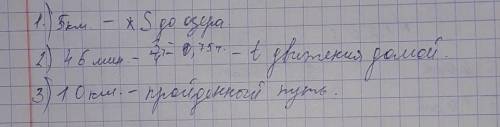 1.) 5км. – х S до озера
2) 45 мин. – 3/4 – 0,75ч. – t движения домой.
3) 10 км. – пройденный путь.